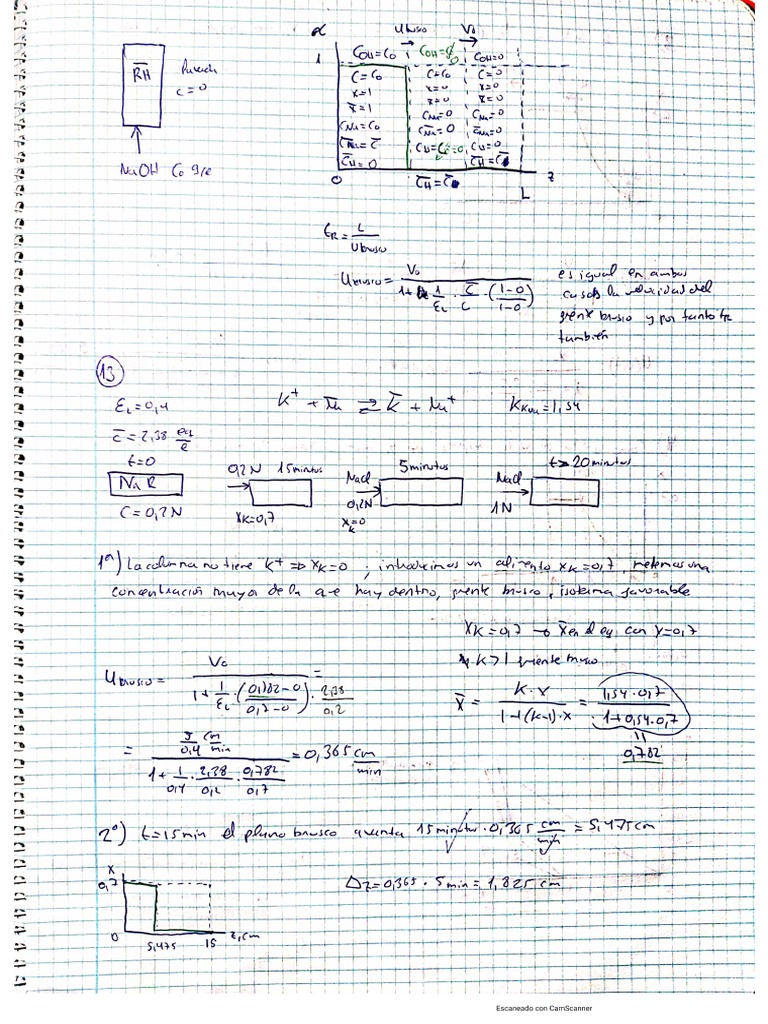 α
Ubrusco
V₀
1
C_OH=C₀
C_OH=0
C_OH=0
R̅H̅
C=C₀
x=1
x̅=1
C_Na=C₀
C̅_Na=C̅
C̅_H=0
C=C₀
x=0
x̅=0
C_Na=0
C̅_Na=0
C_H=0
C=0
x=0
x̅=0
C_Na=0
C̅_Na=0
C_H=0
C̅_H=C̅
c=0
NaOH C₀ g/e
0
C̅_H=C̅
L
z
t_R = L / Ubrusco
Ubrusco = V₀ / (1 + 1/ε_L · C̅/C · (1-0)/(1-0))
es igual en ambos
casos la velocidad del
frente brusco y por tanto tr
también
13
ε_L=0,4
K⁺ + N̅a̅ ⇄ K̅ + Na⁺
K_KNa=1,54
C̅=2,38 eq/ℓ
t=0
Na R
C=0,2N
0,2N 15 minutos
X_K=0,7
NaCl
0,2N
X_K=0
5 minutos
NaCl
1N
t > 20 minutos
1º) La columna no tiene K⁺ ⇒ X_K=0 ; introducimos un alimento X_K=0,7, metemos una
concentración mayor de la que hay dentro, frente brusco, isoterma favorable
X_K=0,7 → x̅ en el eq. con x=0,7
K>1 frente brusco
Ubrusco = V₀ / (1 + 1/ε_L · ((0,782-0)/(0,7-0)) · 2,38/0,2) =
x̅ = K·x / (1+(K-1)·x) = 1,54·0,7 / (1+0,54·0,7)
=
0,782
= (5/0,4 cm/min) / (1 + 1/0,4 · 2,38/0,2 · 0,782/0,7) = 0,365 cm/min
2º) t=15 min el plano brusco avanza 15 minutos · 0,365 cm/min = 5,475 cm
x
0,7
Δz = 0,365 · 5 min = 1,825 cm
0
5,475
15
z, cm
Escaneado con CamScanner